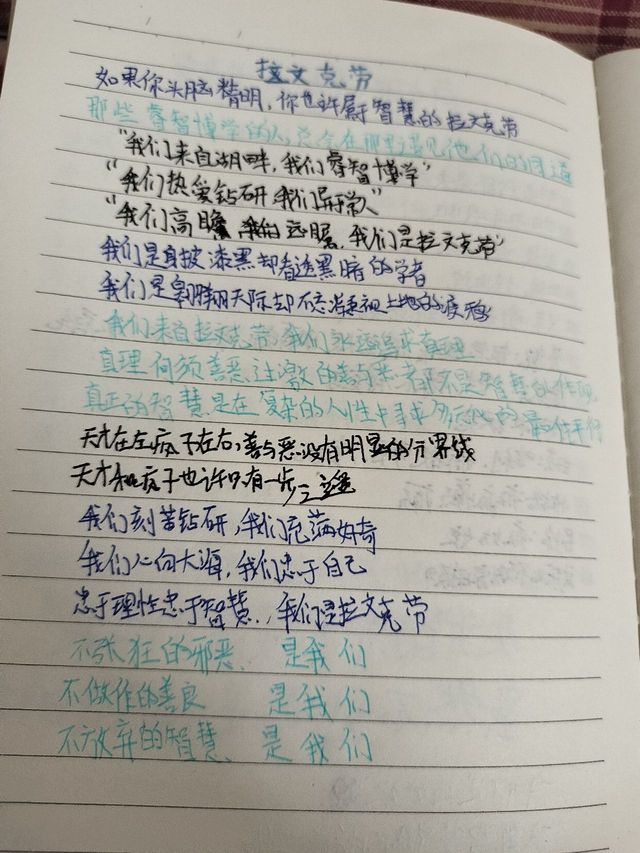 拉文克劳
如果你头脑精明,你也许属于智慧的拉文克劳
那些睿智博学的人,总会在那里遇见他们的同道
"我们来自湖畔,我们睿智博学"
"我们热爱钻研,我们异于常人"
"我们高瞻 我们 远瞩,我们是拉文克劳"
我们是身披漆黑却看透黑暗的学者
我们是翱翔天际却不忘凝视土地的渡鸦
我们来自拉文克劳,我们永远追求真理
真理何须善恶,过激的善与恶都不是智慧的体现
真正的智慧是在复杂的人性中寻求多元化的最佳平衡
天才在左疯子在右,善与恶没有明显的分界线
天才和疯子也许只有一步之遥
我们刻苦钻研,我们充满好奇
我们心向大海,我们忠于自己
忠于理性忠于智慧,我们是拉文克劳
不张狂的邪恶 是我们
不做作的善良 是我们
不放弃的智慧 是我们